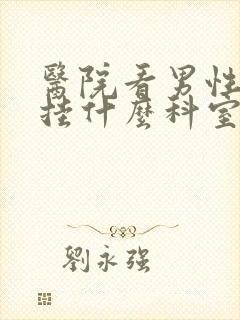 醫院看男性
掛什麼科室
劉永強